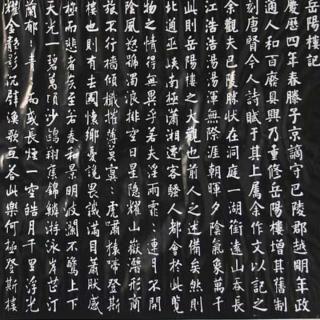 岳陽樓記
慶曆四年春滕子京謫守巴陵郡越明年政
通人和百廢具興乃重修岳陽樓增其舊制
刻唐賢今人詩賦于其上屬余作文以記之
余觀夫巴陵勝狀在洞庭一湖銜遠山吞長
江浩浩湯湯渾無際涯朝暉夕陰氣象萬千
此則岳陽樓之大觀也前人之述備矣然則
北通巫峽南極瀟湘遷客騷人都會於此覽
物之情得無異乎若天淫雨霏連月不開
陰風怒號濁浪排空日星隱耀山嶽潛形商
旅不行檣傾楫摧薄莫冥々虎嘯猿啼登斯
樓也則有去國懷鄉憂讒畏譏滿目蕭然感
極而悲者矣至若春和景明波瀾不驚上下
天光一碧萬頃沙鷗翔集錦鱗游泳岸芷汀
蘭郁々而或長煙一空皓月千里浮光
耀金靜影沉璧漁歌互答此樂何極登斯樓